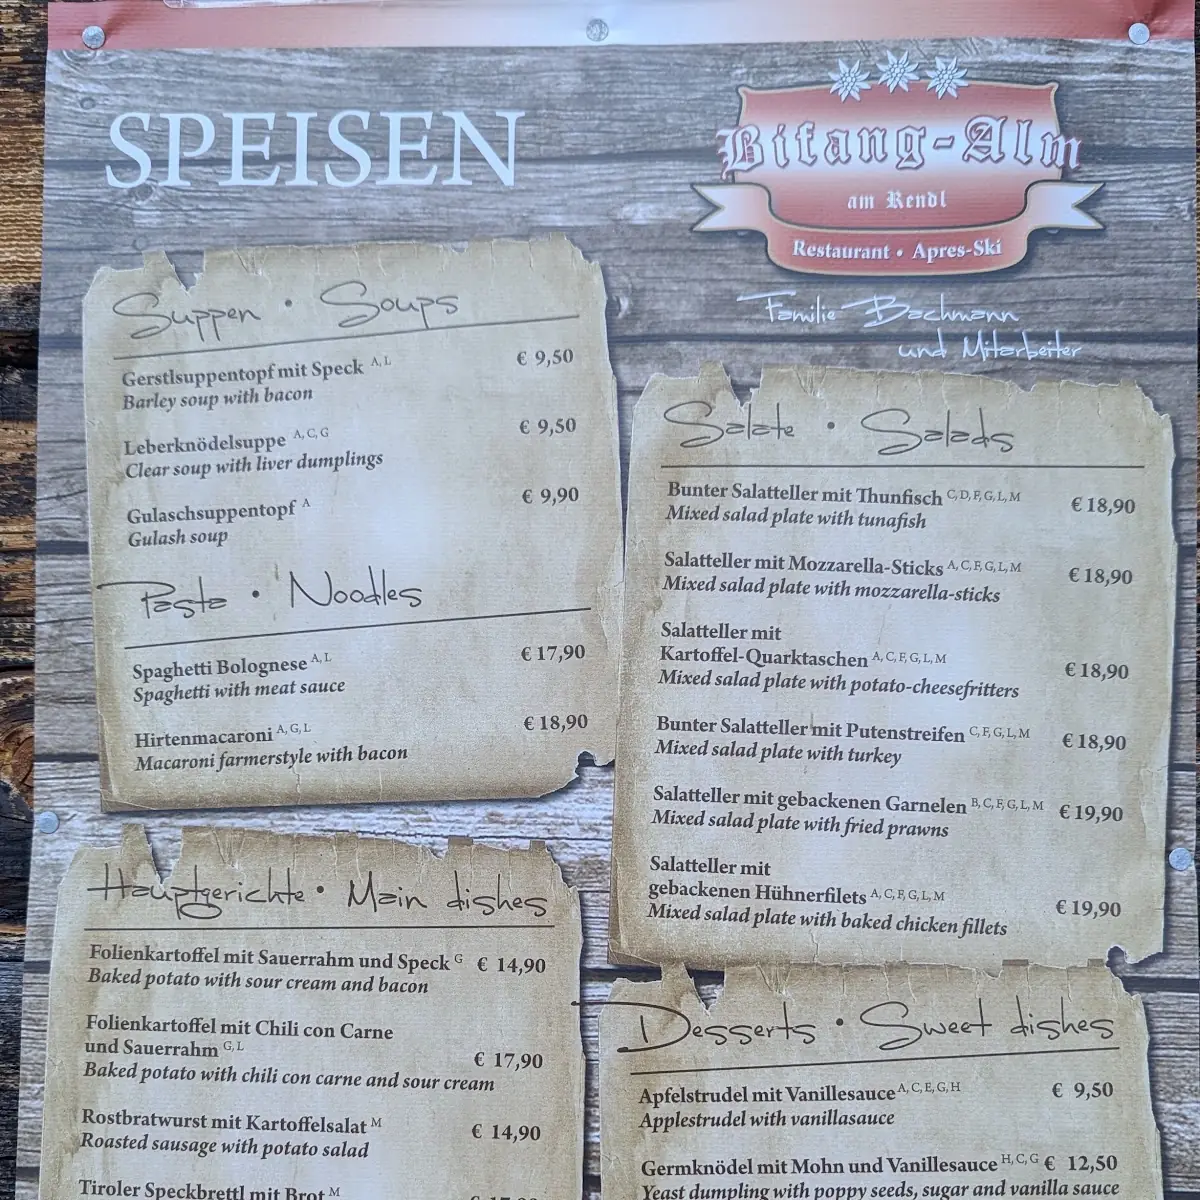 SPEISEN
Bifang-Alm
am Rendl
Restaurant • Apres-Ski
Familie Bachmann
und Mitarbeiter
Suppen • Soups
Gerstlsuppentopf mit Speck A, L € 9,50
Barley soup with bacon
Leberknödelsuppe A, C, G € 9,50
Clear soup with liver dumplings
Gulaschsuppentopf A € 9,90
Gulash soup
Pasta • Noodles
Spaghetti Bolognese A, L € 17,90
Spaghetti with meat sauce
Hirtenmacaroni A, G, L € 18,90
Macaroni farmerstyle with bacon
Salate • Salads
Bunter Salatteller mit Thunfisch C, D, F, G, L, M € 18,90
Mixed salad plate with tunafish
Salatteller mit Mozzarella-Sticks A, C, F, G, L, M € 18,90
Mixed salad plate with mozzarella-sticks
Salatteller mit
Kartoffel-Quarktaschen A, C, F, G, L, M € 18,90
Mixed salad plate with potato-cheesefritters
Bunter Salatteller mit Putenstreifen C, F, G, L, M € 18,90
Mixed salad plate with turkey
Salatteller mit gebackenen Garnelen B, C, F, G, L, M € 19,90
Mixed salad plate with fried prawns
Salatteller mit
gebackenen Hühnerfilets A, C, F, G, L, M € 19,90
Mixed salad plate with baked chicken fillets
Hauptgerichte • Main dishes
Folienkartoffel mit Sauerrahm und Speck G € 14,90
Baked potato with sour cream and bacon
Folienkartoffel mit Chili con Carne
und Sauerrahm G, L € 17,90
Baked potato with chili con carne and sour cream
Rostbratwurst mit Kartoffelsalat M € 14,90
Roasted sausage with potato salad
Tiroler Speckbrettl mit Brot M
Desserts • Sweet dishes
Apfelstrudel mit Vanillesauce A, C, E, G, H € 9,50
Applestrudel with vanillasauce
Germknödel mit Mohn und Vanillesauce H, C, G € 12,50
Yeast dumpling with poppy seeds, sugar and vanilla sauce